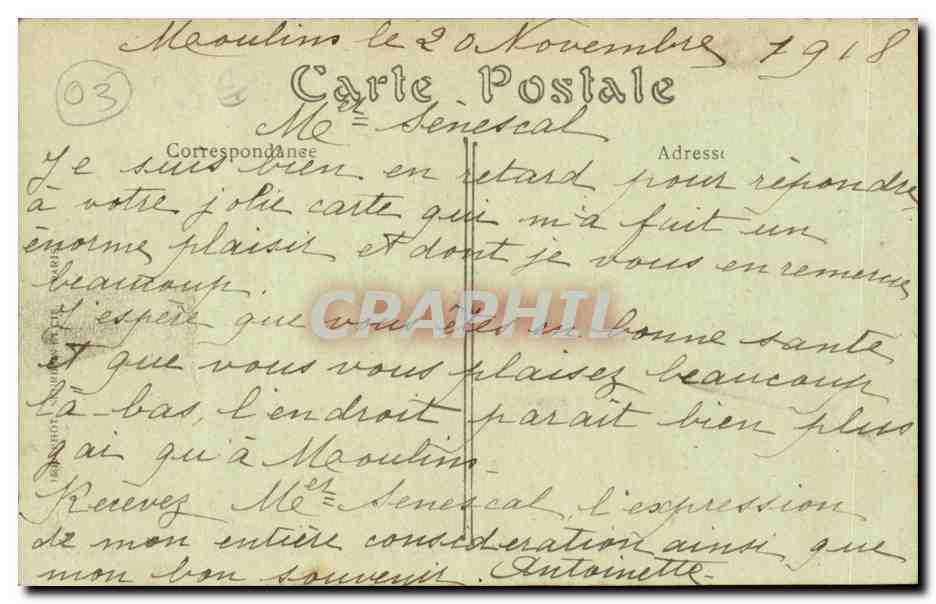 Moulins le 20 Novembre 1918
03
Carte Postale
Mer Sénéscal
Correspondance
Adresse
Je suis bien en retard pour répondre
à votre jolie carte qui m'a fait un
énorme plaisir et dont je vous en remercie
beaucoup.
CPAPHIL.COM
J'espère que vous êtes en bonne santé
et que vous vous plaisez beaucoup
là bas, l'endroit parait bien plus
gai qu'à Moulins.
Recevez Mer Sénéscal, l'expression
de mon entière considération ainsi que
mon bon souvenir. Antoinette